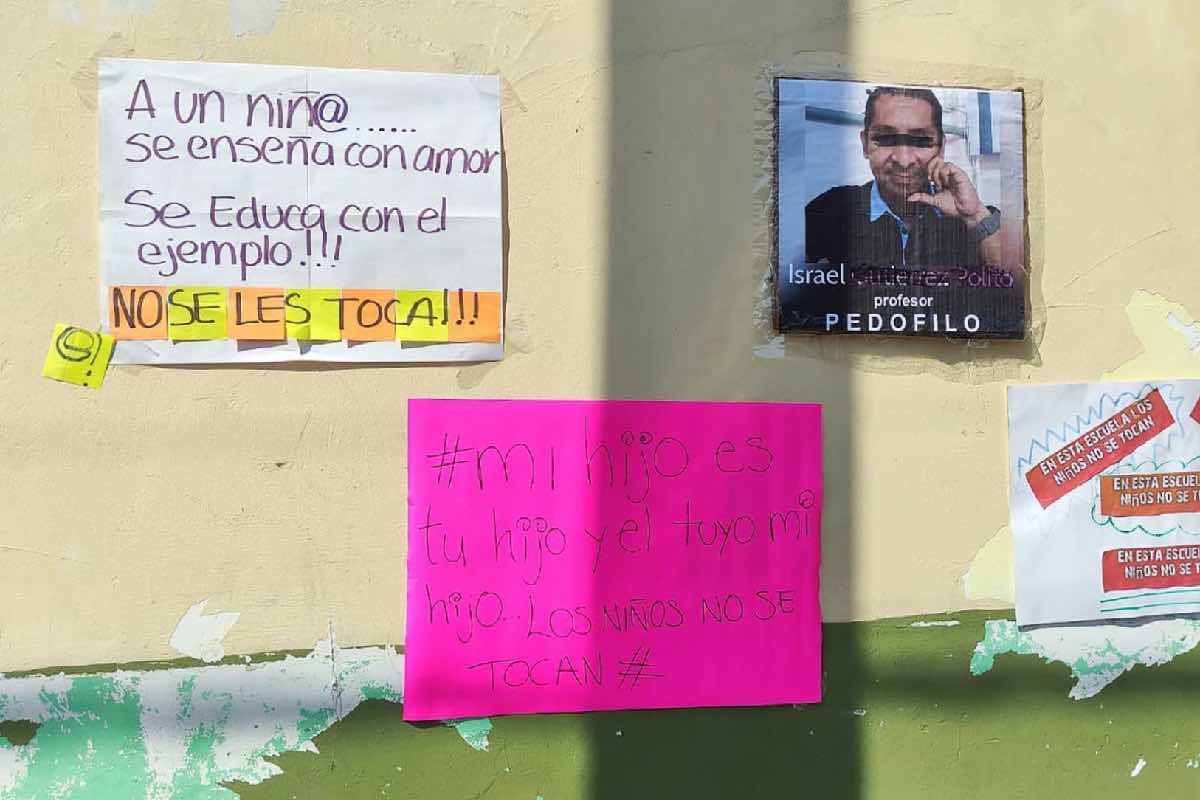 A un niñ@......
se enseña con amor
Se Educa con el
ejemplo!!!
NO SE LES TOCA!!!
Israel Gutierrez Polito
profesor
PEDOFILO
#mi hijo es
tu hijo y el tuyo mi
hijo... LOS NIÑOS NO SE
TOCAN #
EN ESTA ESCUELA LOS
NIÑOS NO SE TOCAN
EN ESTA ESCUEL
NIÑOS NO SE T
EN ESTA ESCUEL
NIÑOS NO SE T